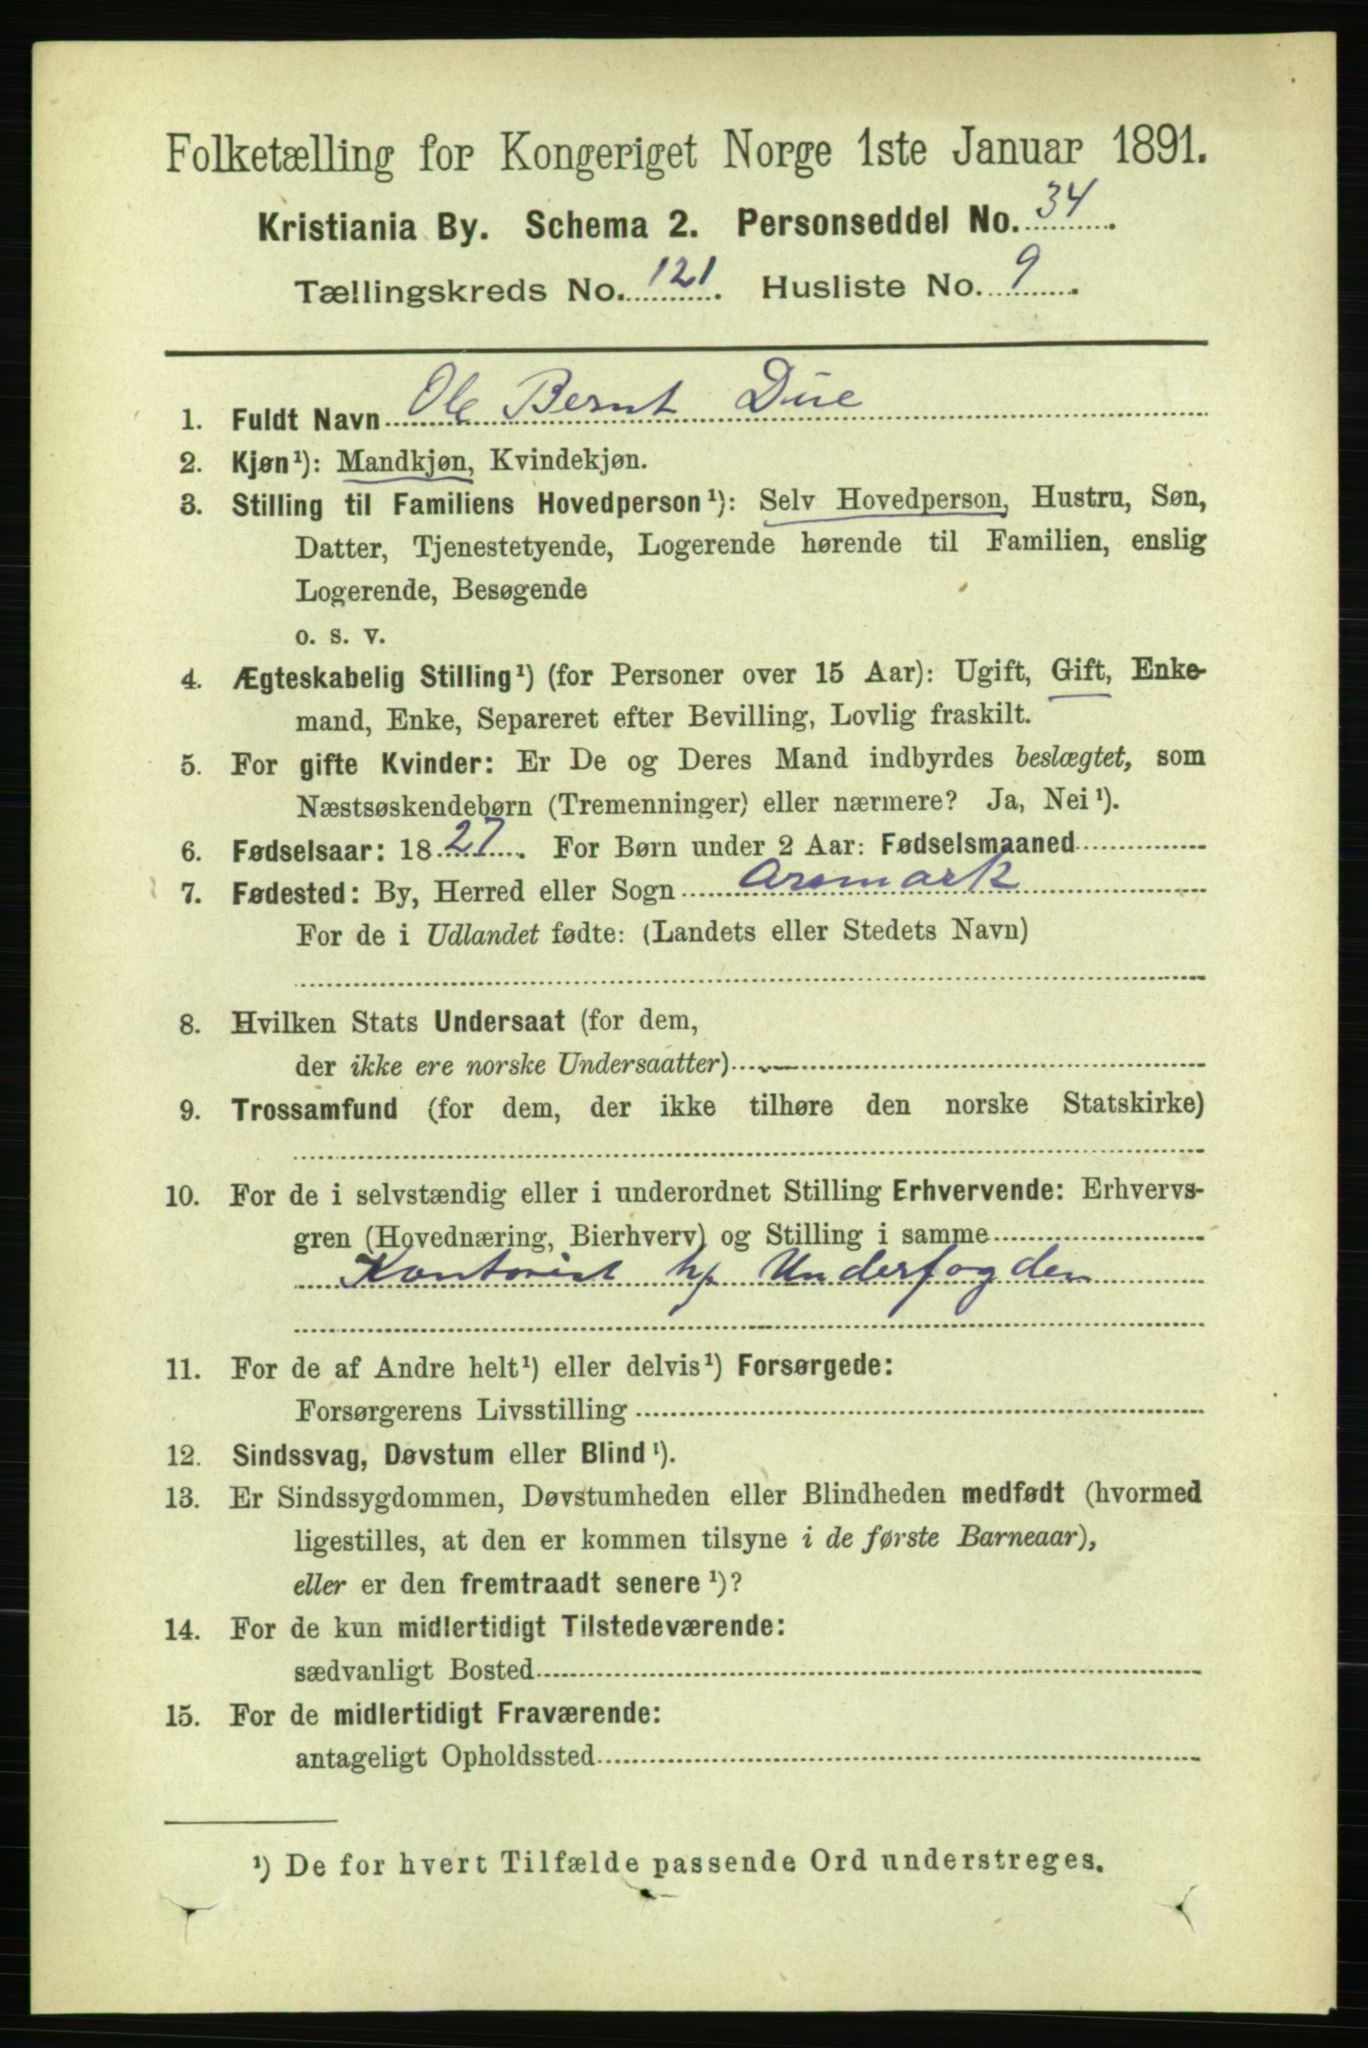 Folketælling for Kongeriget Norge 1ste Januar 1891.
Kristiania By. Schema 2. Personseddel No. 34.
Tællingskreds No. 121. Husliste No. 9.
1. Fuldt Navn Ole Bernt Due
2. Kjøn¹): Mandkjøn, Kvindekjøn.
3. Stilling til Familiens Hovedperson¹): Selv Hovedperson, Hustru, Søn,
Datter, Tjenestetyende, Logerende hørende til Familien, enslig
Logerende, Besøgende
o. s. v.
4. Ægteskabelig Stilling¹) (for Personer over 15 Aar): Ugift, Gift, Enke-
mand, Enke, Separeret efter Bevilling, Lovlig fraskilt.
5. For gifte Kvinder: Er De og Deres Mand indbyrdes beslægtet, som
Næstsøskendebørn (Tremenninger) eller nærmere? Ja, Nei¹).
6. Fødselsaar: 1827. For Børn under 2 Aar: Fødselsmaaned
7. Fødested: By, Herred eller Sogn Aremark
For de i Udlandet fødte: (Landets eller Stedets Navn)
8. Hvilken Stats Undersaat (for dem,
der ikke ere norske Undersaatter)
9. Trossamfund (for dem, der ikke tilhøre den norske Statskirke)
10. For de i selvstændig eller i underordnet Stilling Erhvervende: Erhvervs-
gren (Hovednæring, Bierhverv) og Stilling i samme
Kontorist h/ Underfogden
11. For de af Andre helt¹) eller delvis¹) Forsørgede:
Forsørgerens Livsstilling
12. Sindssvag, Døvstum eller Blind¹).
13. Er Sindssygdommen, Døvstumheden eller Blindheden medfødt (hvormed
ligestilles, at den er kommen tilsyne i de første Barneaar),
eller er den fremtraadt senere¹)?
14. For de kun midlertidigt Tilstedeværende:
sædvanligt Bosted
15. For de midlertidigt Fraværende:
antageligt Opholdssted
¹) De for hvert Tilfælde passende Ord understreges.